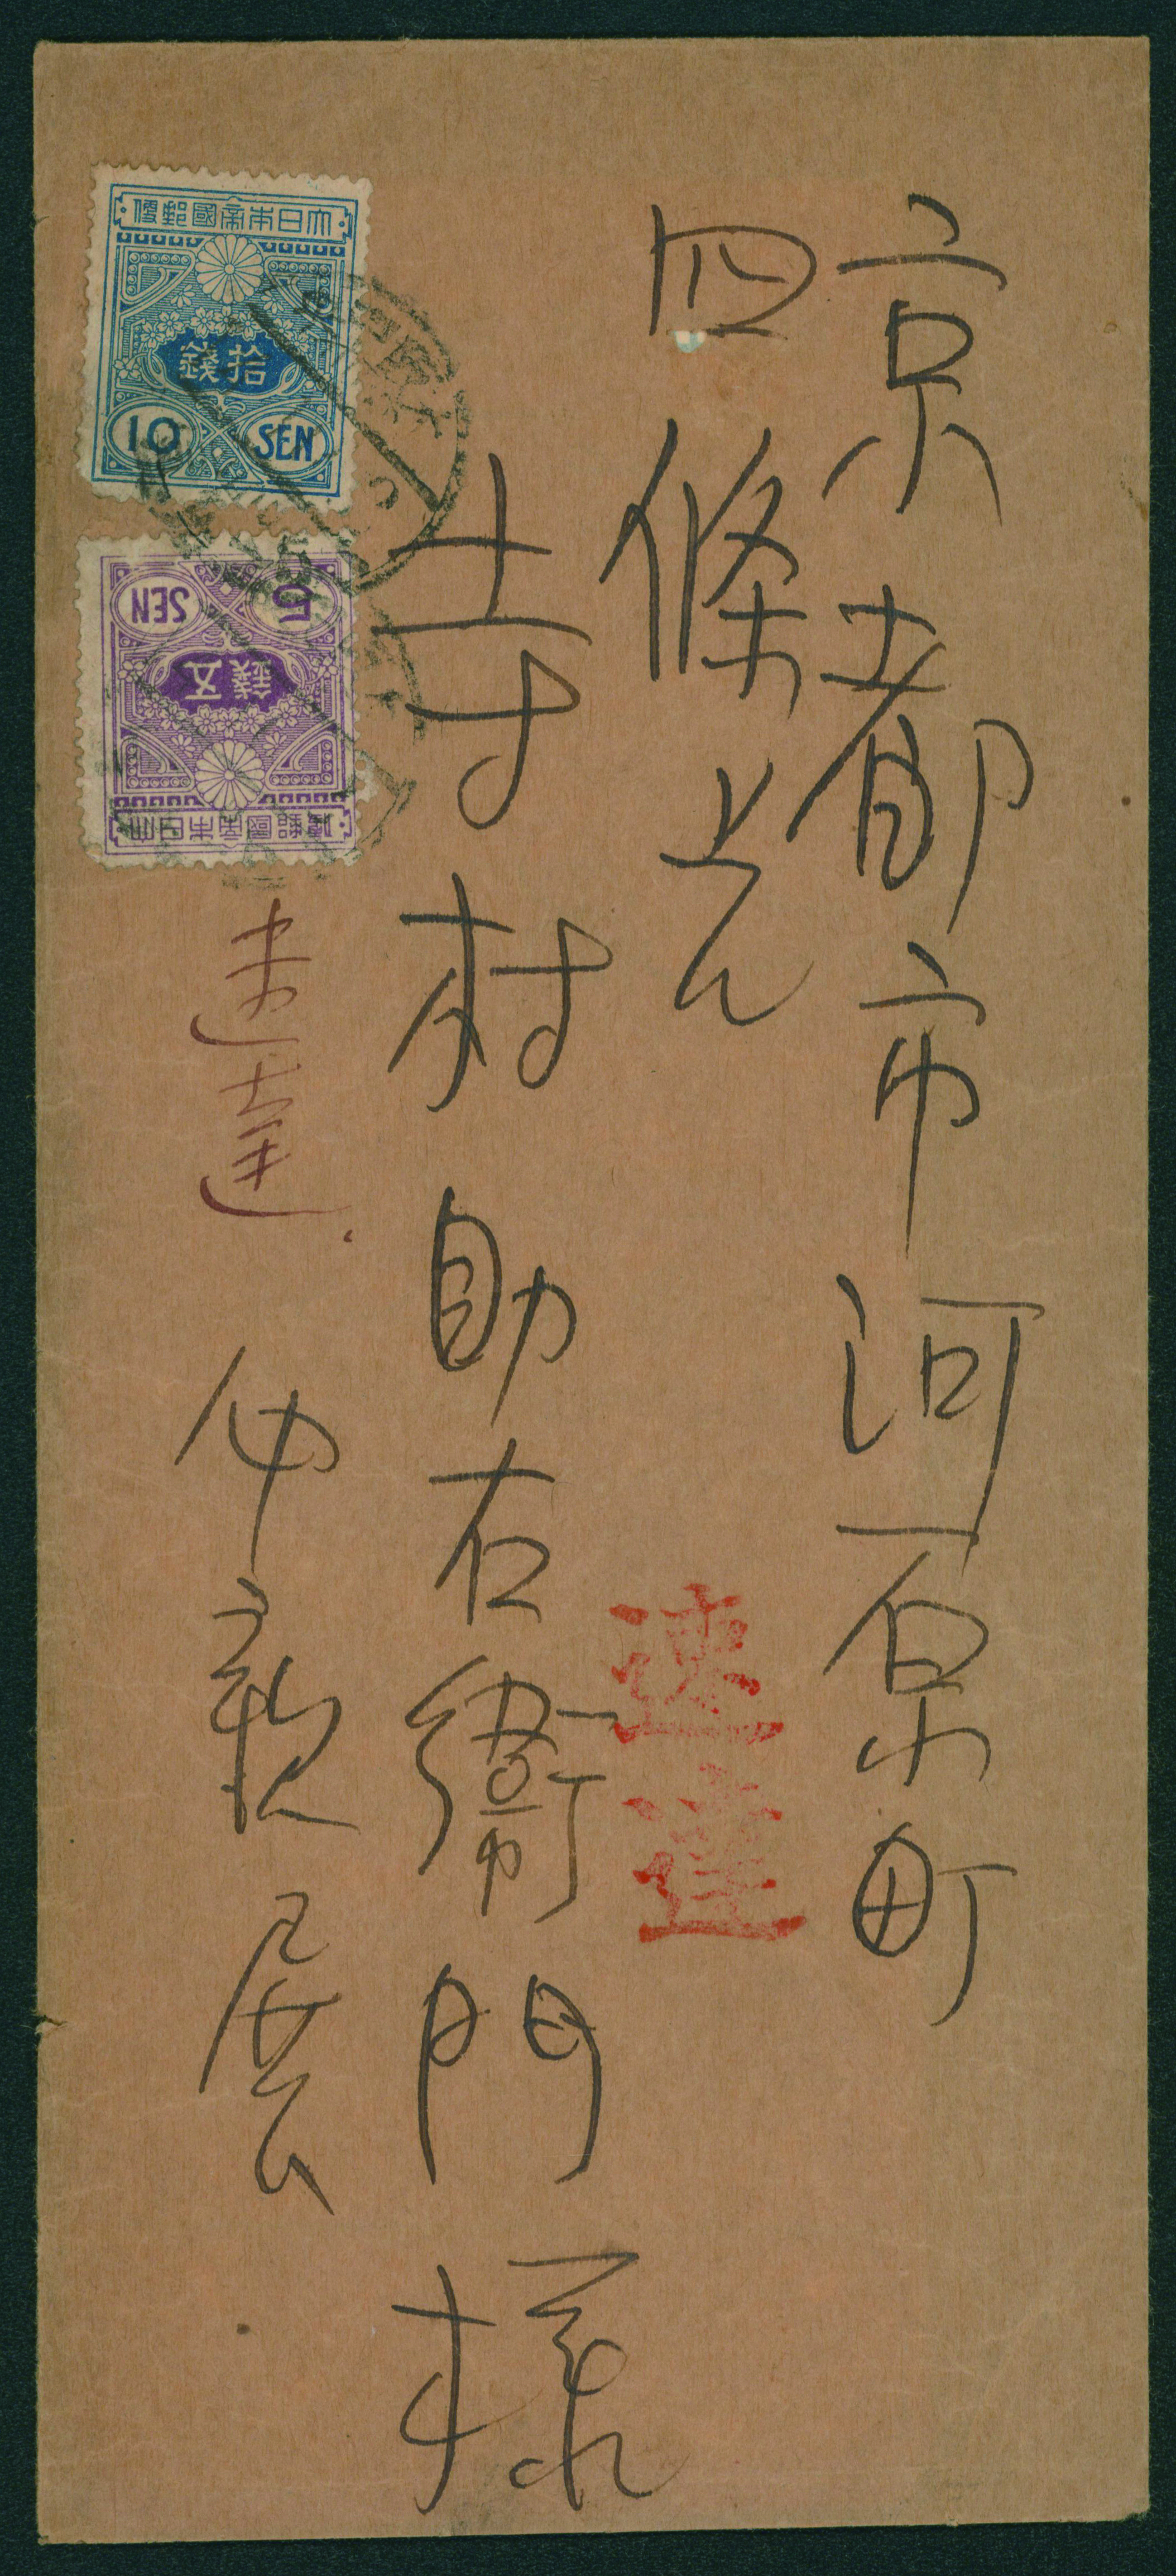 京都市河原町
四條上ル
寺村助右衛門様
仲敬展
速達
速達
大日本帝國郵便
拾錢
10 SEN
5 SEN
五錢
大日本帝國郵便